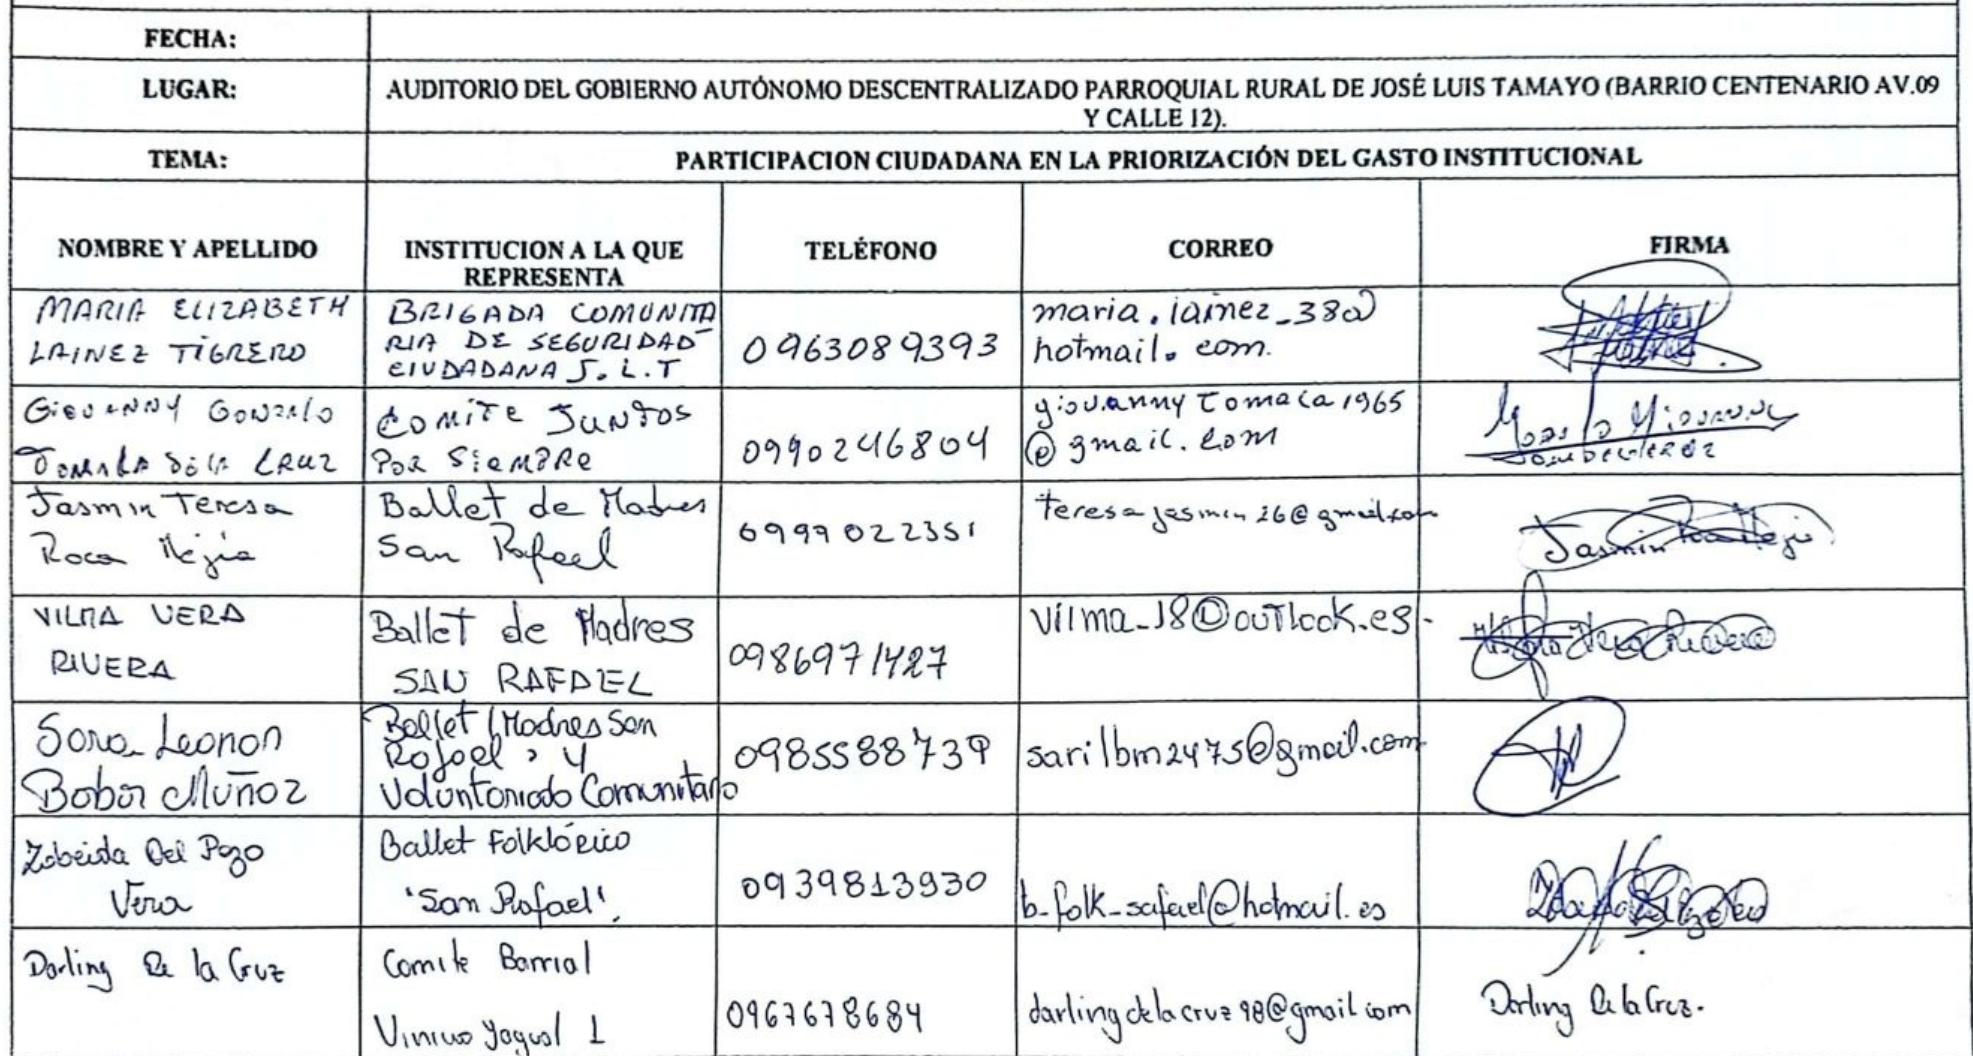 FECHA:
LUGAR: AUDITORIO DEL GOBIERNO AUTÓNOMO DESCENTRALIZADO PARROQUIAL RURAL DE JOSÉ LUIS TAMAYO (BARRIO CENTENARIO AV.09
Y CALLE 12).
TEMA: PARTICIPACION CIUDADANA EN LA PRIORIZACIÓN DEL GASTO INSTITUCIONAL
NOMBRE Y APELLIDO
INSTITUCION A LA QUE
REPRESENTA
TELÉFONO
CORREO
FIRMA
MARIA ELIZABETH
LAINEZ TIGRERO
BRIGADA COMUNITA
RIA DE SEGURIDAD
CIUDADANA J.L.T
0963089393
maria.lainez_38@
hotmail.com.
Giovanny Gonzalo
Tomala De la Cruz
Comite Juntos
Por Siempre
0990246804
giovanny tomala 1965
@gmail.com
Jasmin Teresa
Roca Mejia
Ballet de Madres
San Rafael
0999022351
teresajasmin26@gmail.com
Jasmin Roca Mejia
VILMA VERA
RIVERA
Ballet de Madres
SAN RAFAEL
0986971427
vilma_18@outlook.es.
Vera Rivera
Sara Leonor
Bobor Muñoz
Ballet (Madres San
Rafael, y
Voluntariado Comunitario
0985588739
sarilbm2475@gmail.com
Zobeida Del Pozo
Vera
Ballet Folklórico
"San Rafael".
0939813930
b-folk-safael@hotmail.es
Darling De la Cruz
Comite Barrial
Vinicio Yagual 1
0967678684
darlingdelacruz98@gmail.com
Darling De la Cruz.